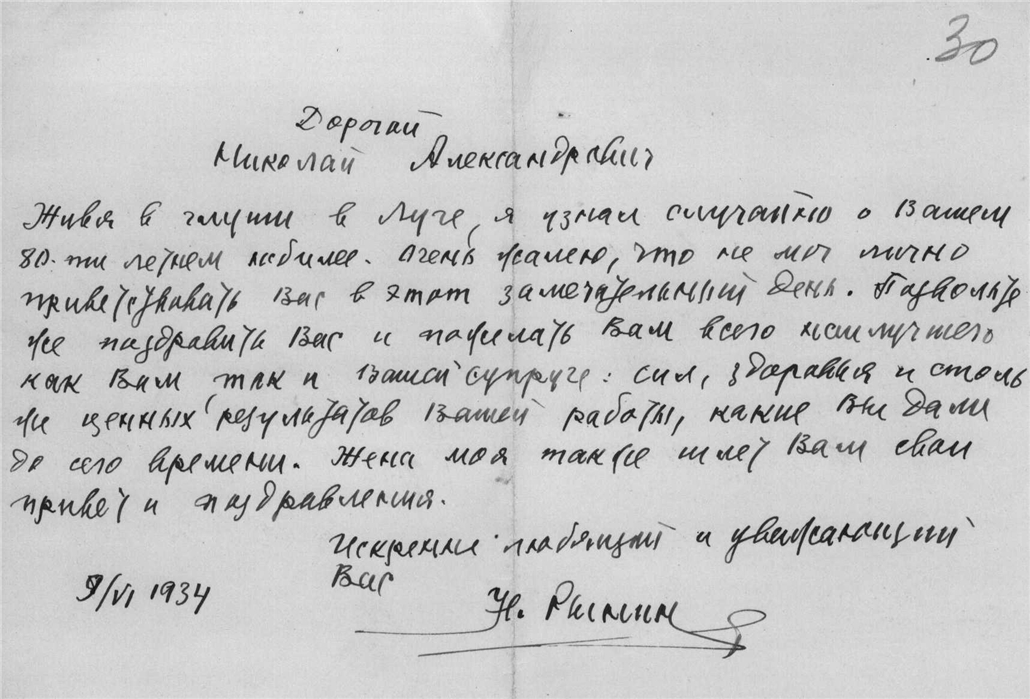 30
Дорогой
Николай Александрович
Живя в глуши в Луге, я узнал случайно о Вашем
80-ти летнем юбилее. Очень жалею, что не мог лично
приветствовать Вас в этот замечательный день. Позвольте
же поздравить Вас и пожелать Вам всего наилучшего
как Вам, так и Вашей супруге: сил, здоровья и столь
же ценных результатов Вашей работы, какие Вы дали
до сего времени. Жена моя также шлет Вам свои
привет и поздравления.
Искренне любящий и уважающий
Вас
9/VI 1934
Н. Рынин